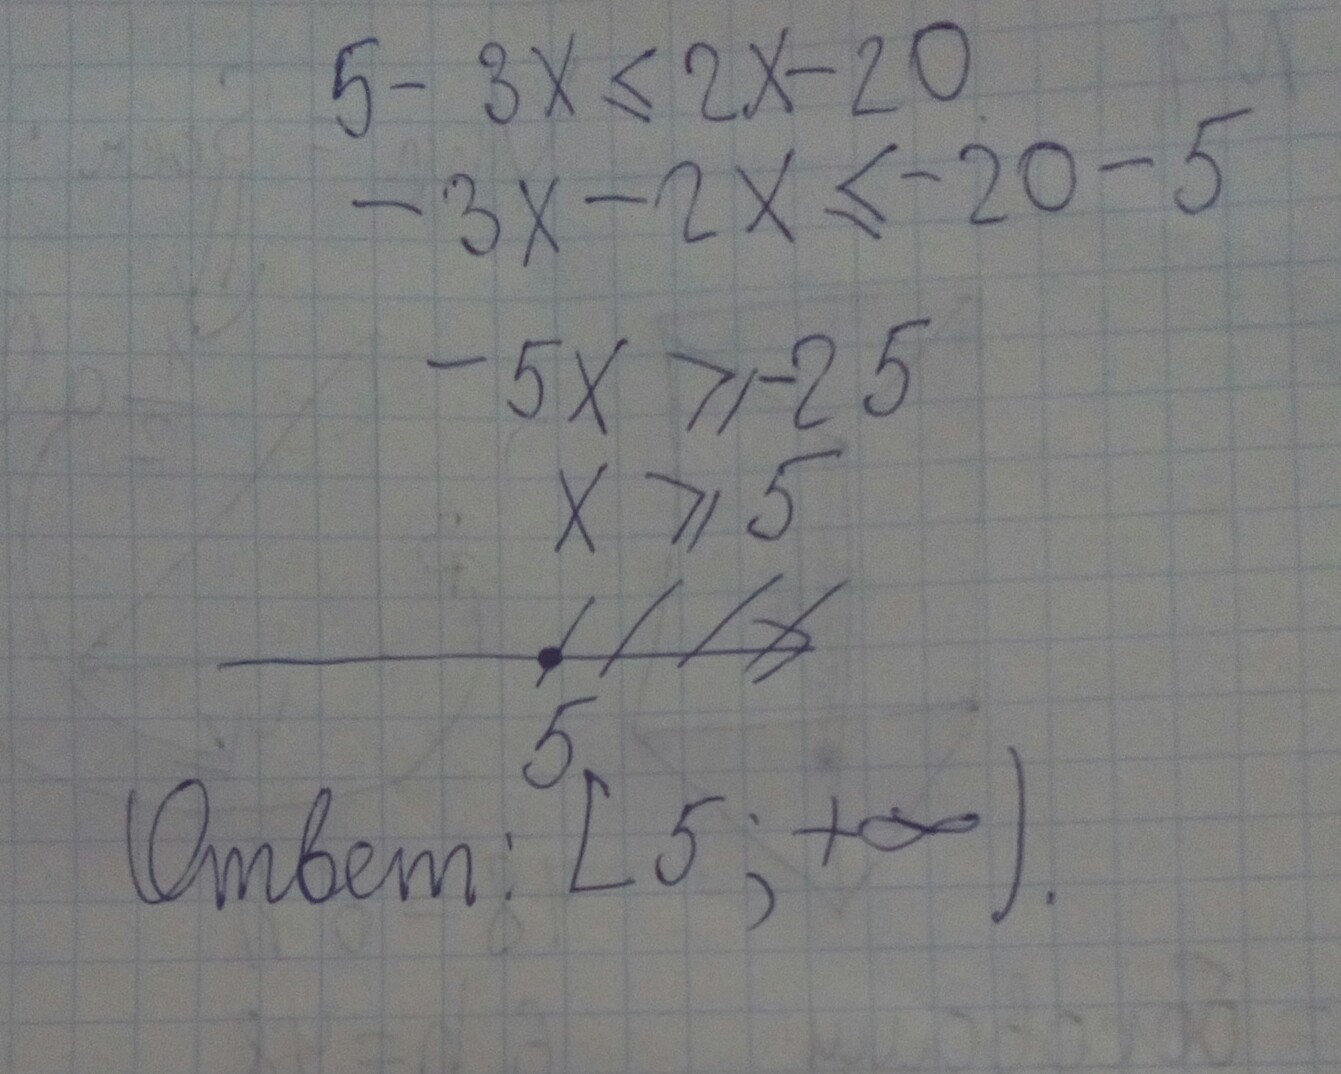 5 - 3x ⩽ 2x - 20
- 3x - 2x ⩽ - 20 - 5
- 5x ⩾ - 25
x ⩾ 5
5
Ответ: [5; +∞).